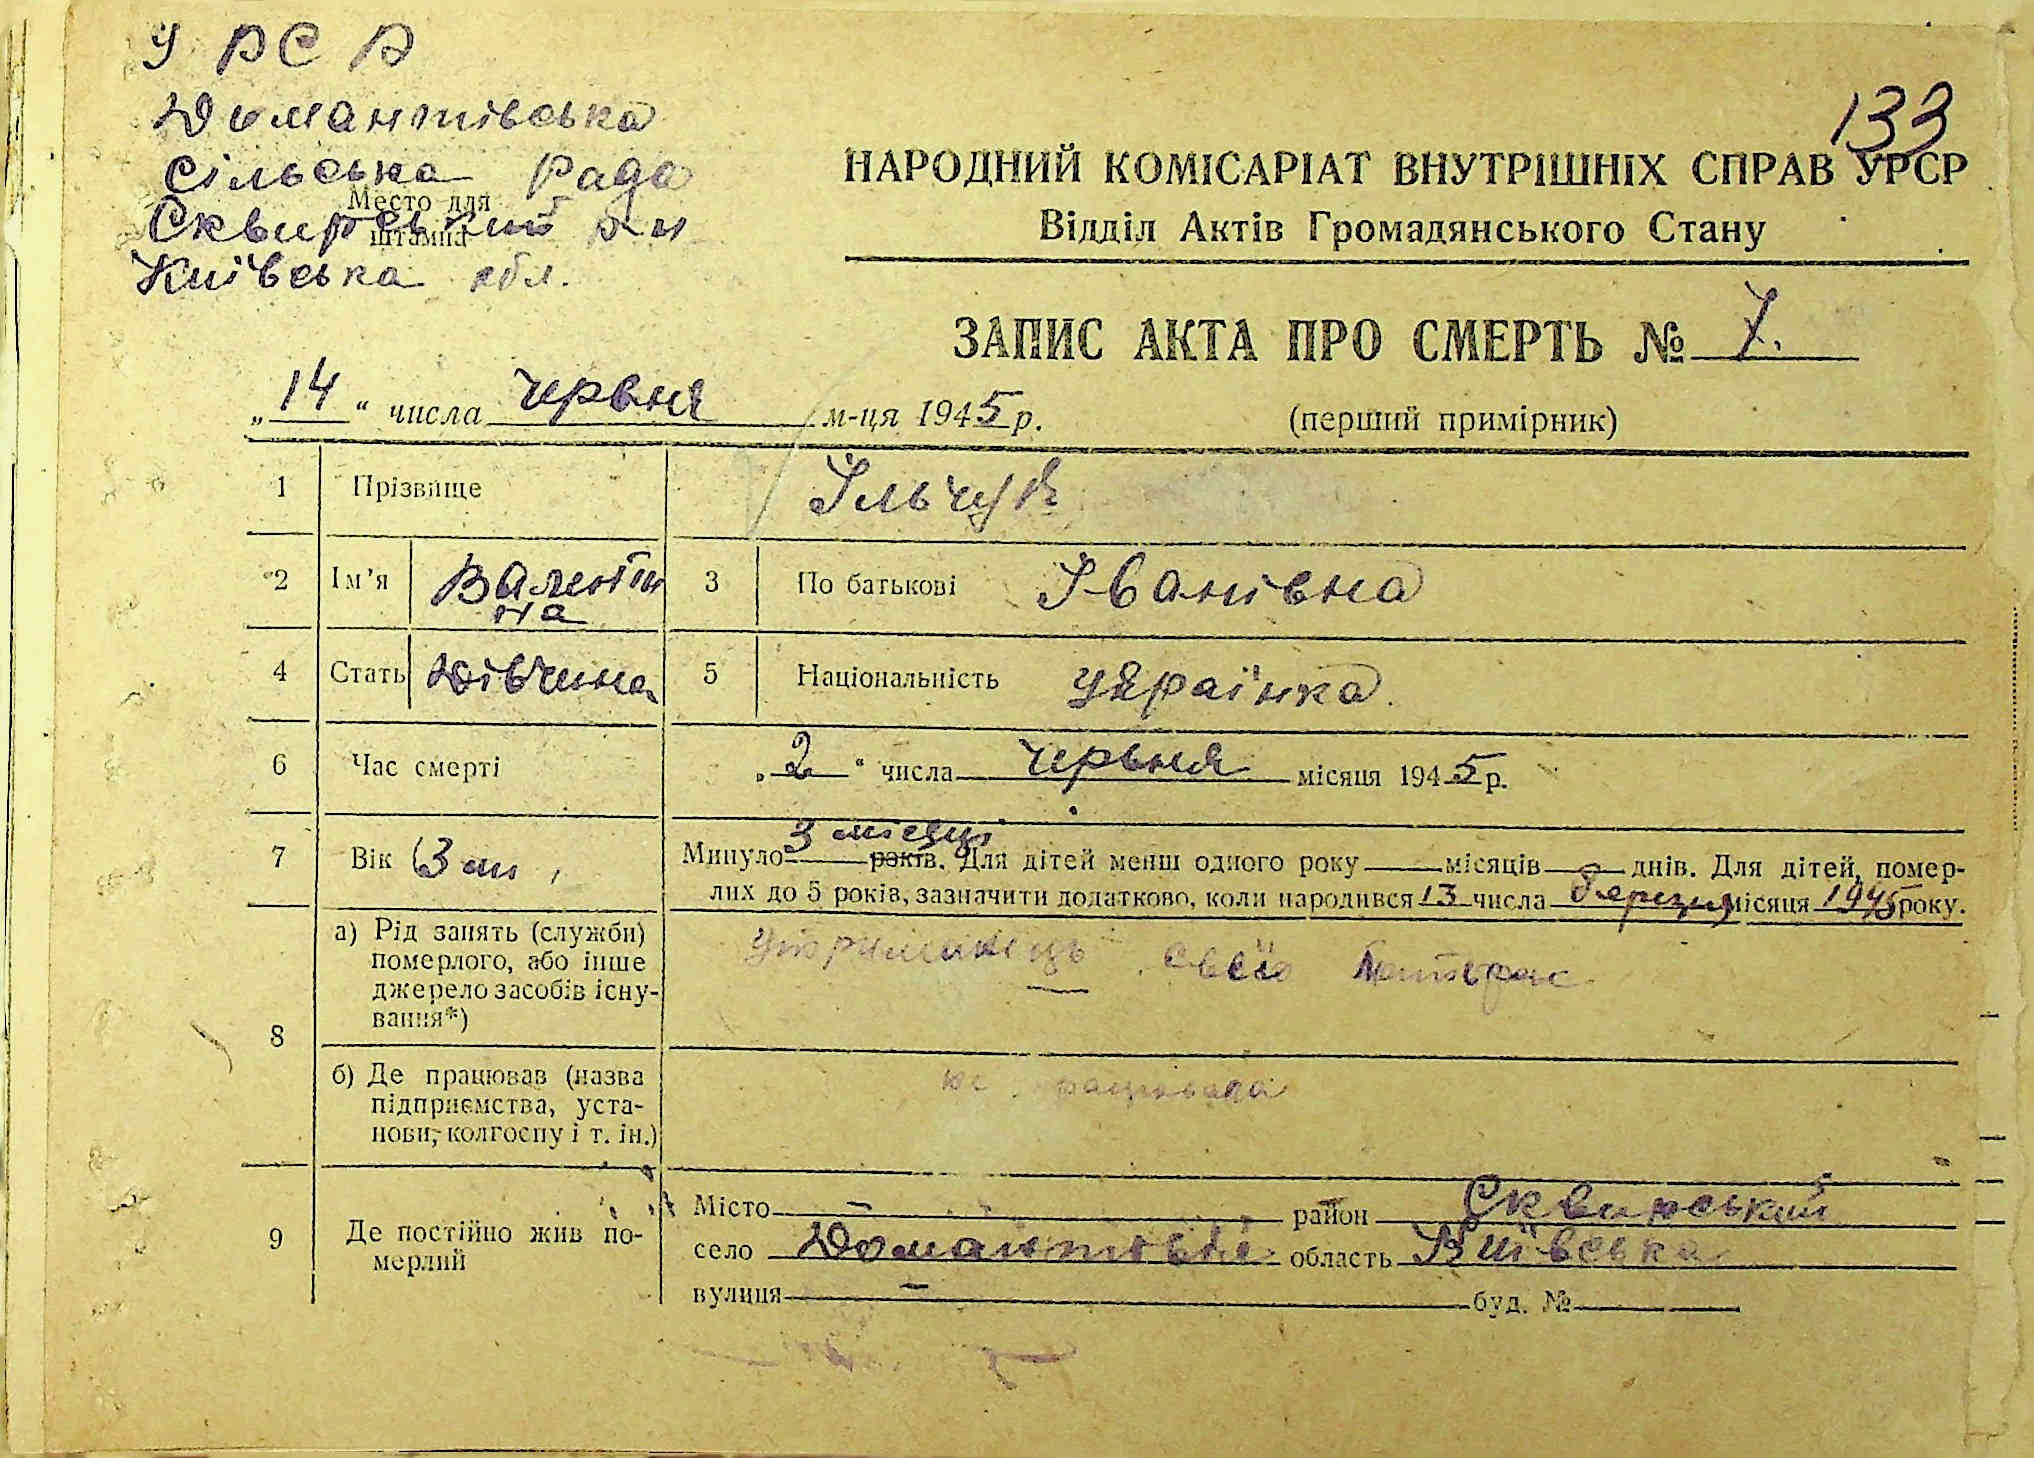 У РСР
Домантівська
сільська рада
Место для
штампа
Сквирський р-н
Київська обл.
133
НАРОДНИЙ КОМІСАРІАТ ВНУТРІШНІХ СПРАВ УРСР
Відділ Актів Громадянського Стану
ЗАПИС АКТА ПРО СМЕРТЬ № 7.
„14“ числа червня м-ця 1945 р. (перший примірник)
1 Прізвище Ільчук
2 Ім’я Валентина 3 По батькові Іванівна
4 Стать дівчина 5 Національність українка.
6 Час смерті „2“ числа червня місяця 1945 р.
7 Вік 3 м Минуло 3 місяці років. Для дітей менш одного року місяців днів. Для дітей, помер-
лих до 5 років, зазначити додатково, коли народився 13 числа березня місяця 1945 року.
8 а) Рід занять (служби)
померлого, або інше
джерело засобів існу-
вання*)
утриманець своїх
б) Де працював (назва
підприємства, уста-
нови, колгоспу і т. ін.)
не працювала
9 Де постійно жив по-
мерлий
Місто — район Сквирський
село Домантівка область Київська
вулиця — буд. №